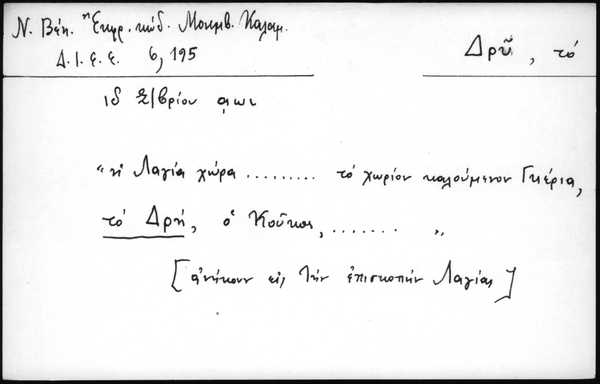 Ν. Βέη. "Εκφρ. κώδ. Μονεμβ. Καλαμ.
Δ.Ι.Ε.Ε. 6, 195
Δρῦ, τό
ιδ Σ/βρίου ͵αωι
"ἡ Λαγία χώρα ......... τό χωρίον καλούμενον Γκέρια,
τό Δρῆ, ὁ Κοῦκος, ....... "
[ἀνήκουν εἰς τήν ἐπισκοπήν Λαγίας]